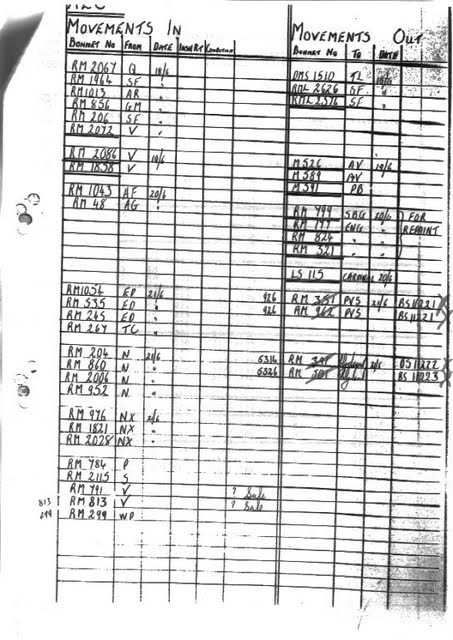 MOVEMENTS IN
BONNET No FROM DATE
RM 2067 Q 18/6
RM 1964 SF "
RM 1013 AR "
RM 856 GM "
RM 206 SF "
RM 2072 V "
RM 2086 V 19/6
RM 1858 V "
RM 1043 AF 20/6
RM 48 AG "
RM 1054 ED 21/6
RM 535 ED "
RM 245 ED "
RM 267 TC "
RM 204 N 21/6
RM 860 N "
RM 2006 N "
RM 952 N "
RM 976 NX
RM 1821 NX "
RM 2028 NX "
RM 784 P
RM 2115 S
RM 791 V ? Safe
813 RM 813 V ? Safe
299 RM 299 WD
MOVEMENTS OUT
BONNET No TO DATE
DMS 1510 TL
RML 2626 SF "
RML 2376 SF "
M 526 AV 19/6
M 589 AV
M 591 PB
RM 799 SBG 20/6 FOR
RM 197 ENG " REPAINT
RM 824 " "
RM 321 " "
LS 115 CARDINAL 20/6
926 PVS 21/6 BS 11221
926 PVS BS 11221
RM
RM BS 11223